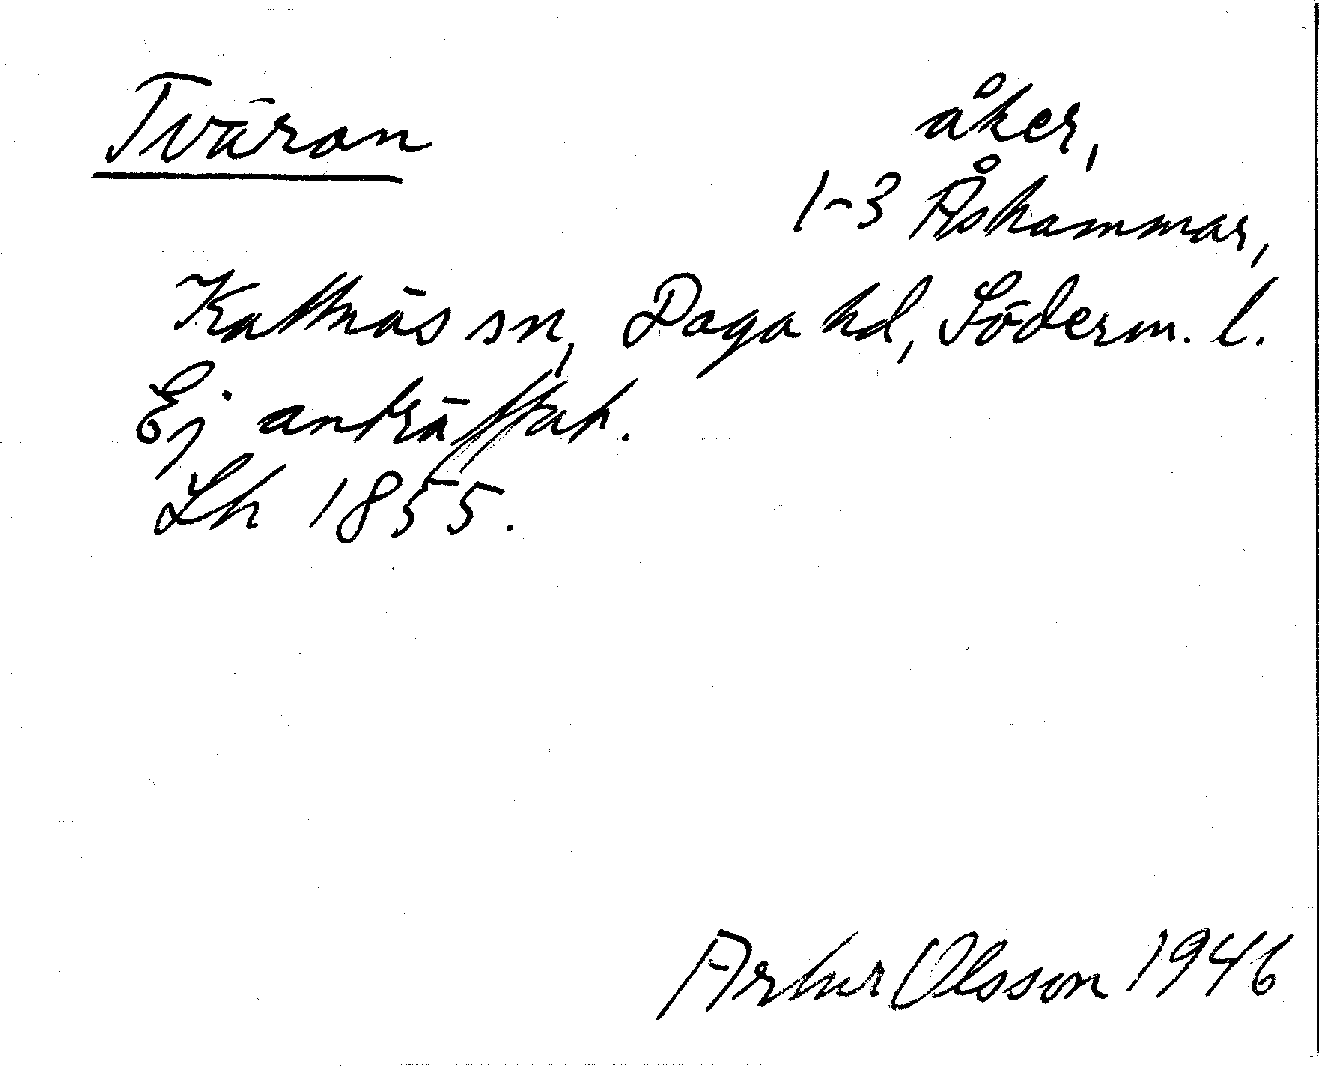 Tväran
åker,
1-3 Åshammar,
Kattnäs sn, Daga hd, Söderm. l.
Ej anträffat.
Lh 1855.
Arhur Olsson 1946